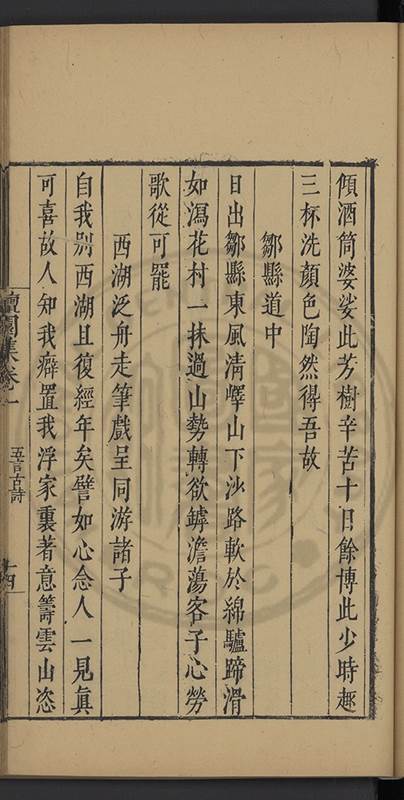 傾酒筒婆娑此芳樹辛苦十日餘博此少時趣
三杯洗顏色陶然得吾故
鄒縣道中
日出鄒縣東風清嶧山下沙路軟於綿驢蹄滑
如瀉花村一抹過山勢轉欲罅澹蕩客子心勞
歌從可罷
西湖泛舟走筆戲呈同游諸子
自我別西湖且復經年矣譬如心念人一見眞
可喜故人知我癖置我浮家裏著意籌雲山恣
集卷一
五言古詩
十四